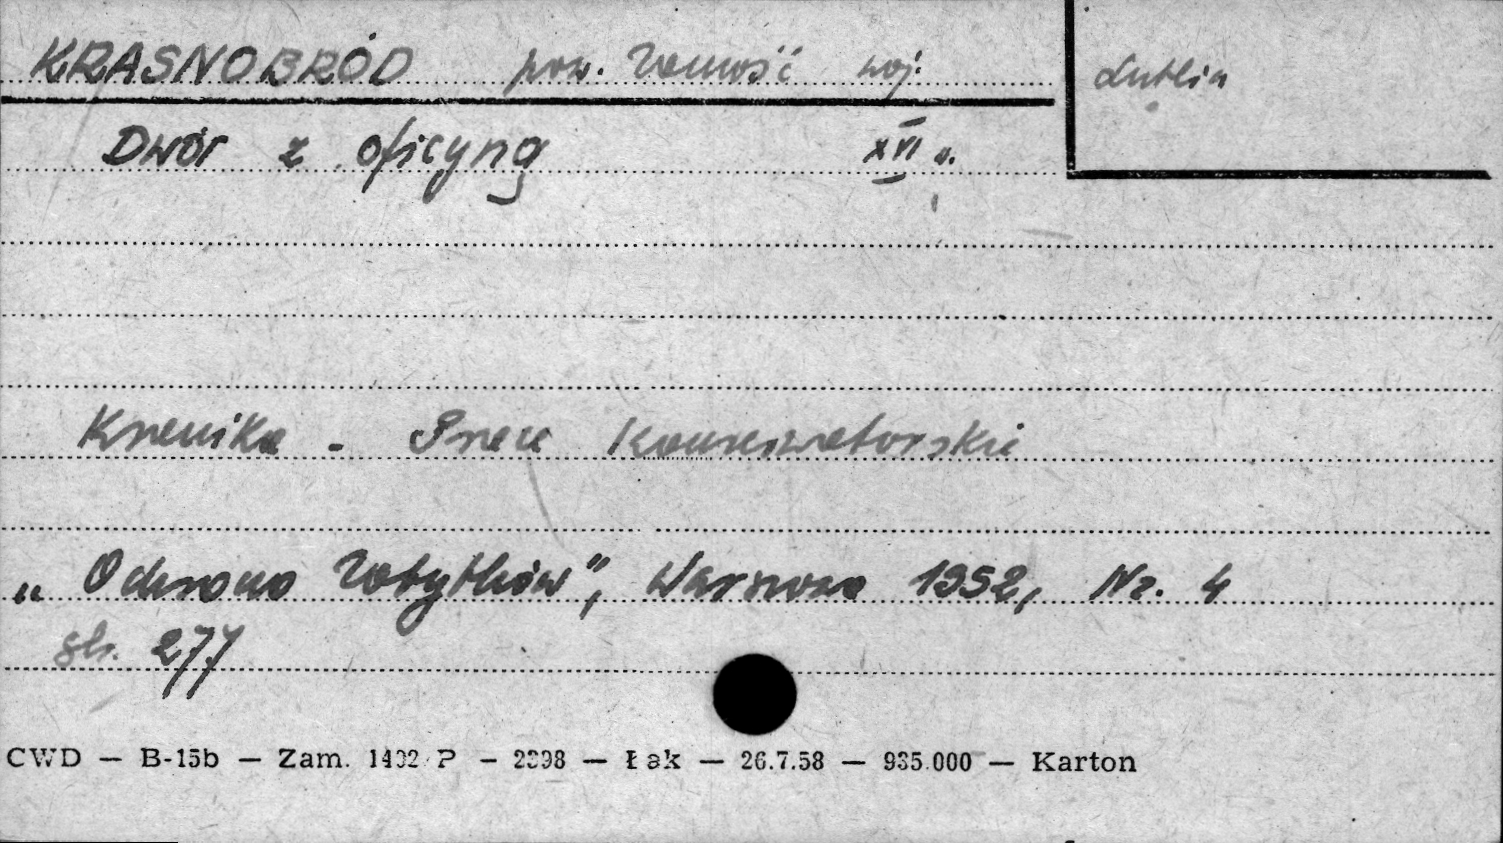 KRASNOBRÓD pow. Zamość woj. Lublin
Dwór z oficyną XVI w.
Kronika - Prace Konserwatorskie
„Ochrona Zabytków", Warszawa 1952, Nr. 4
str. 277
CWD — B-15b — Zam. 1402/P — 2398 — Łak — 26.7.58 — 935.000 — Karton